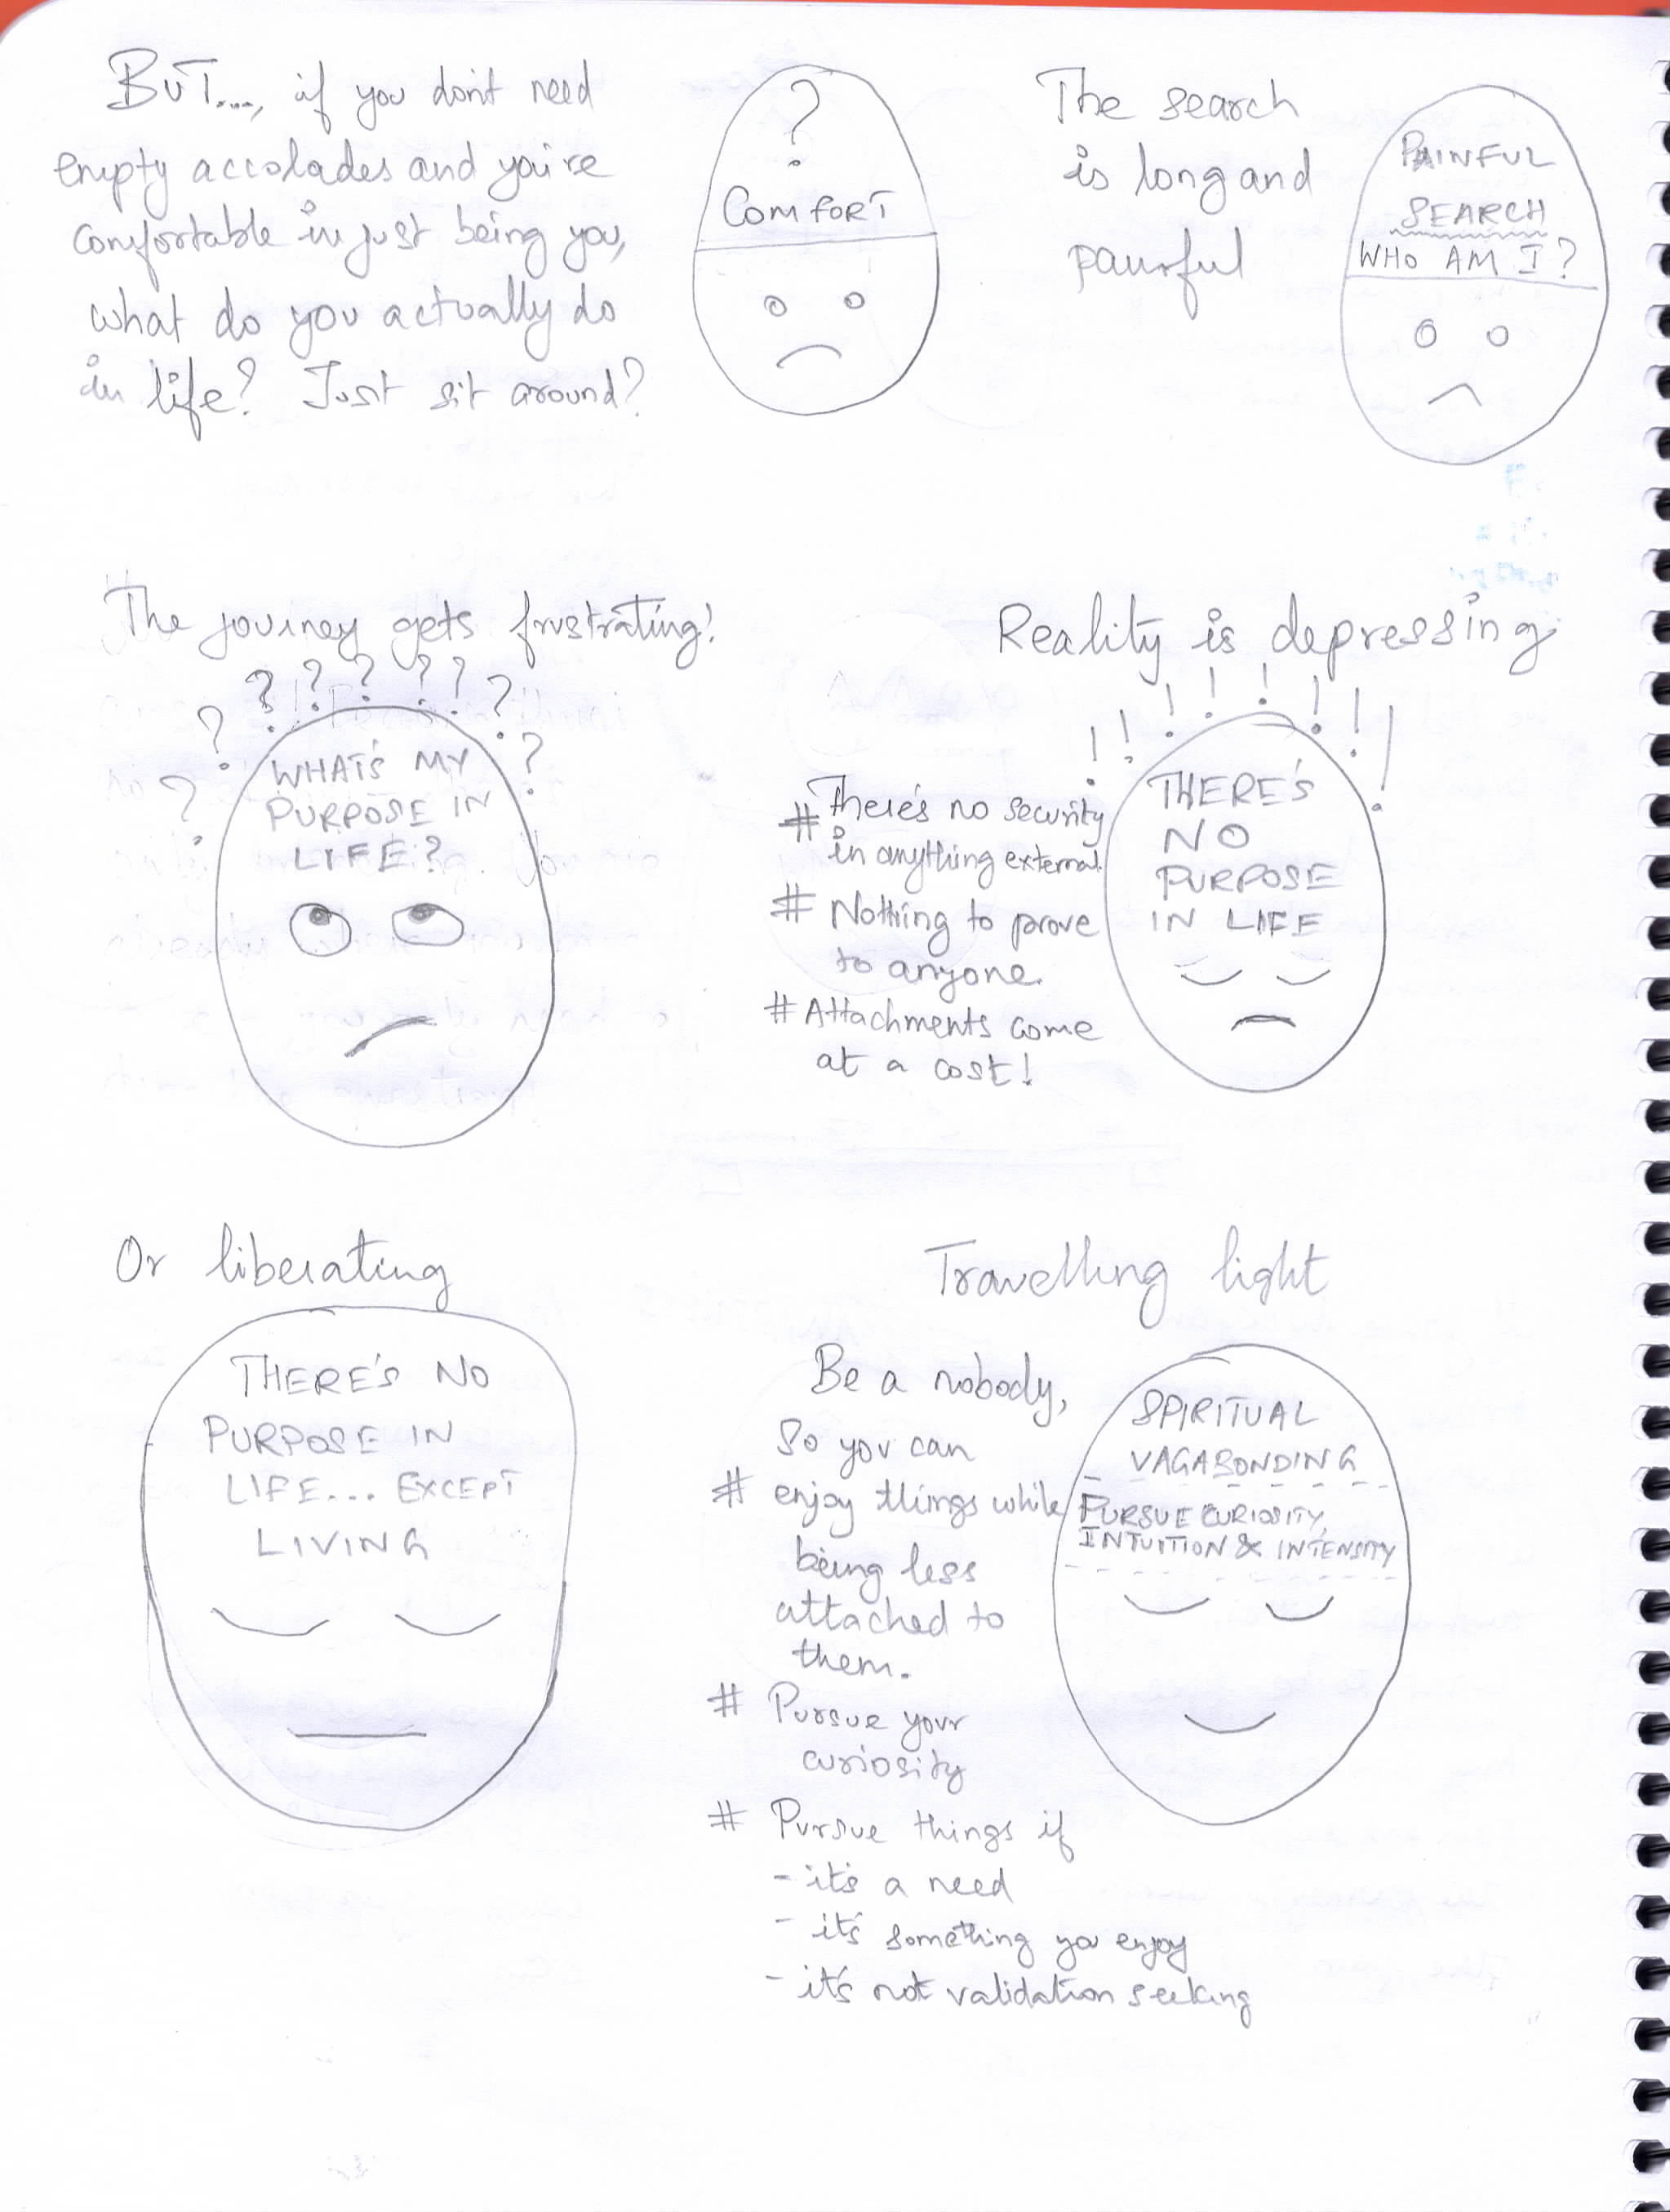 BUT...., if you don't need
empty accolades and you're
comfortable in just being you,
what do you actually do
in life? Just sit around?
?
COMFORT
The search
is long and
painful
PAINFUL
SEARCH
WHO AM I?
The journey gets frustrating!
? ? ? ? ? ? ? ? ?
WHAT'S MY
PURPOSE IN
LIFE?
Reality is depressing
! ! ! ! ! ! ! !
# There's no security
in anything external.
# Nothing to prove
to anyone.
# Attachments come
at a cost!
THERE'S
NO
PURPOSE
IN LIFE
Or liberating
THERE'S NO
PURPOSE IN
LIFE... EXCEPT
LIVING
Travelling light
Be a nobody,
So you can
# enjoy things while
being less
attached to
them.
# Pursue your
curiosity
# Pursue things if
- it's a need
- it's something you enjoy
- it's not validation seeking
SPIRITUAL
VAGABONDING
PURSUE CURIOSITY,
INTUITION & INTENSITY